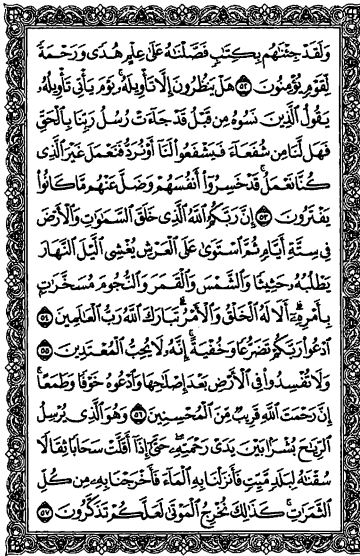 وَلَقَدْ جِئْنَٰهُم بِكِتَٰبٍ فَصَّلْنَٰهُ عَلَىٰ عِلْمٍ هُدًى وَرَحْمَةً
لِّقَوْمٍ يُؤْمِنُونَ ٥٢ هَلْ يَنظُرُونَ إِلَّا تَأْوِيلَهُۥ يَوْمَ يَأْتِى تَأْوِيلُهُۥ
يَقُولُ ٱلَّذِينَ نَسُوهُ مِن قَبْلُ قَدْ جَآءَتْ رُسُلُ رَبِّنَا بِٱلْحَقِّ
فَهَل لَّنَا مِن شُفَعَآءَ فَيَشْفَعُوا۟ لَنَآ أَوْ نُرَدُّ فَنَعْمَلَ غَيْرَ ٱلَّذِى
كُنَّا نَعْمَلُ ۚ قَدْ خَسِرُوٓا۟ أَنفُسَهُمْ وَضَلَّ عَنْهُم مَّا كَانُوا۟
يَفْتَرُونَ ٥٣ إِنَّ رَبَّكُمُ ٱللَّهُ ٱلَّذِى خَلَقَ ٱلسَّمَٰوَٰتِ وَٱلْأَرْضَ
فِى سِتَّةِ أَيَّامٍ ثُمَّ ٱسْتَوَىٰ عَلَى ٱلْعَرْشِ يُغْشِى ٱلَّيْلَ ٱلنَّهَارَ
يَطْلُبُهُۥ حَثِيثًا وَٱلشَّمْسَ وَٱلْقَمَرَ وَٱلنُّجُومَ مُسَخَّرَٰتٍۭ
بِأَمْرِهِۦٓ ۗ أَلَا لَهُ ٱلْخَلْقُ وَٱلْأَمْرُ ۗ تَبَارَكَ ٱللَّهُ رَبُّ ٱلْعَٰلَمِينَ ٥٤
ٱدْعُوا۟ رَبَّكُمْ تَضَرُّعًا وَخُفْيَةً ۚ إِنَّهُۥ لَا يُحِبُّ ٱلْمُعْتَدِينَ ٥٥
وَلَا تُفْسِدُوا۟ فِى ٱلْأَرْضِ بَعْدَ إِصْلَٰحِهَا وَٱدْعُوهُ خَوْفًا وَطَمَعًا ۚ
إِنَّ رَحْمَتَ ٱللَّهِ قَرِيبٌ مِّنَ ٱلْمُحْسِنِينَ ٥٦ وَهُوَ ٱلَّذِى يُرْسِلُ
ٱلرِّيَٰحَ بُشْرًۢا بَيْنَ يَدَىْ رَحْمَتِهِۦ ۖ حَتَّىٰٓ إِذَآ أَقَلَّتْ سَحَابًا ثِقَالًا
سُقْنَٰهُ لِبَلَدٍ مَّيِّتٍ فَأَنزَلْنَا بِهِ ٱلْمَآءَ فَأَخْرَجْنَا بِهِۦ مِن كُلِّ
ٱلثَّمَرَٰتِ ۚ كَذَٰلِكَ نُخْرِجُ ٱلْمَوْتَىٰ لَعَلَّكُمْ تَذَكَّرُونَ ٥٧